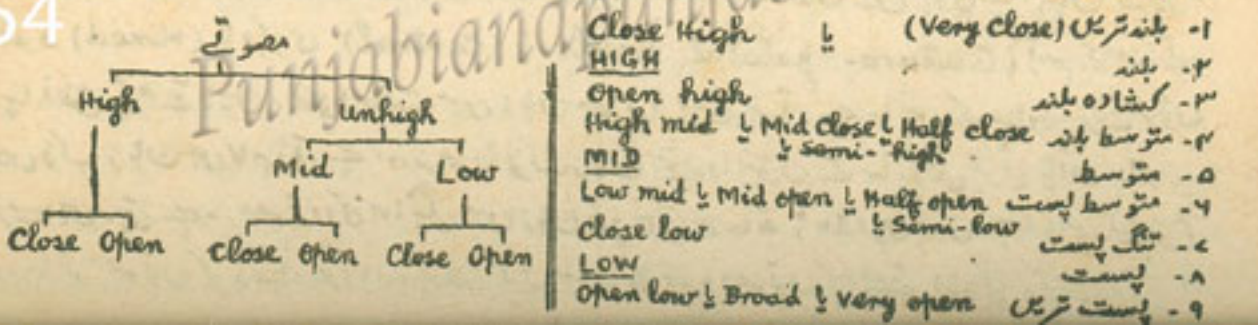 54
Punjabiandpunjab
مصوتے
High Unhigh
Mid Low
Close Open Close Open Close Open
۱- بلند ترین (Very Close) یا Close High
۲- بلند HIGH
۳- کشادہ بلند Open high
۴- متوسط بلند Half close یا Mid Close یا High mid
یا Semi-high
۵- متوسط MID
۶- متوسط پست Half open یا Mid open یا Low mid
یا Semi-low
۷- تنگ پست Close low
۸- پست LOW
۹- پست ترین Very open یا Broad یا Open low